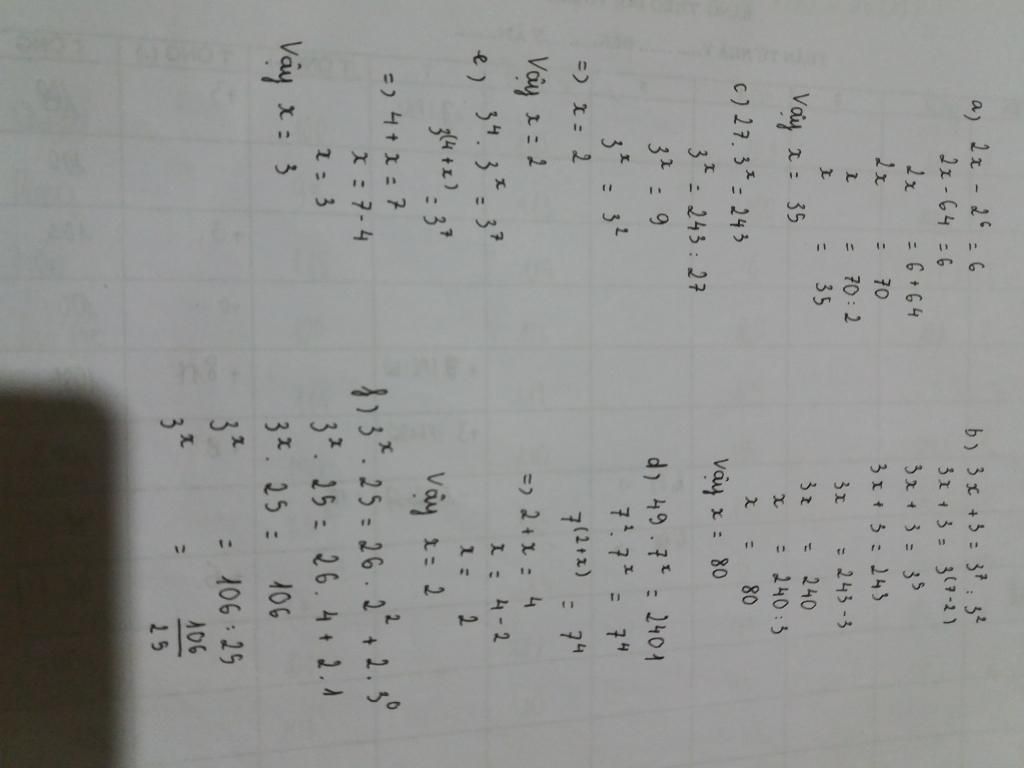 a) 2x - 2⁶ = 6
2x - 64 = 6
2x = 6 + 64
2x = 70
x = 70 : 2
x = 35
Vậy x = 35
c) 27 . 3ˣ = 243
3ˣ = 243 : 27
3ˣ = 9
3ˣ = 3²
=) x = 2
Vậy x = 2
e) 3⁴ . 3ˣ = 3⁷
3⁽⁴⁺ˣ⁾ = 3⁷
=) 4 + x = 7
x = 7 - 4
x = 3
Vậy x = 3
b) 3x + 3 = 3⁷ : 3²
3x + 3 = 3⁽⁷⁻²⁾
3x + 3 = 3⁵
3x + 3 = 243
3x = 243 - 3
3x = 240
x = 240 : 3
x = 80
Vậy x = 80
d) 49 . 7ˣ = 2401
7² . 7ˣ = 7⁴
7⁽²⁺ˣ⁾ = 7⁴
=) 2 + x = 4
x = 4 - 2
x = 2
Vậy x = 2
f) 3ˣ . 25 = 26 . 2² + 2 . 3⁰
3ˣ . 25 = 26 . 4 + 2 . 1
3ˣ . 25 = 106
3ˣ = 106 : 25
3ˣ = 106/25